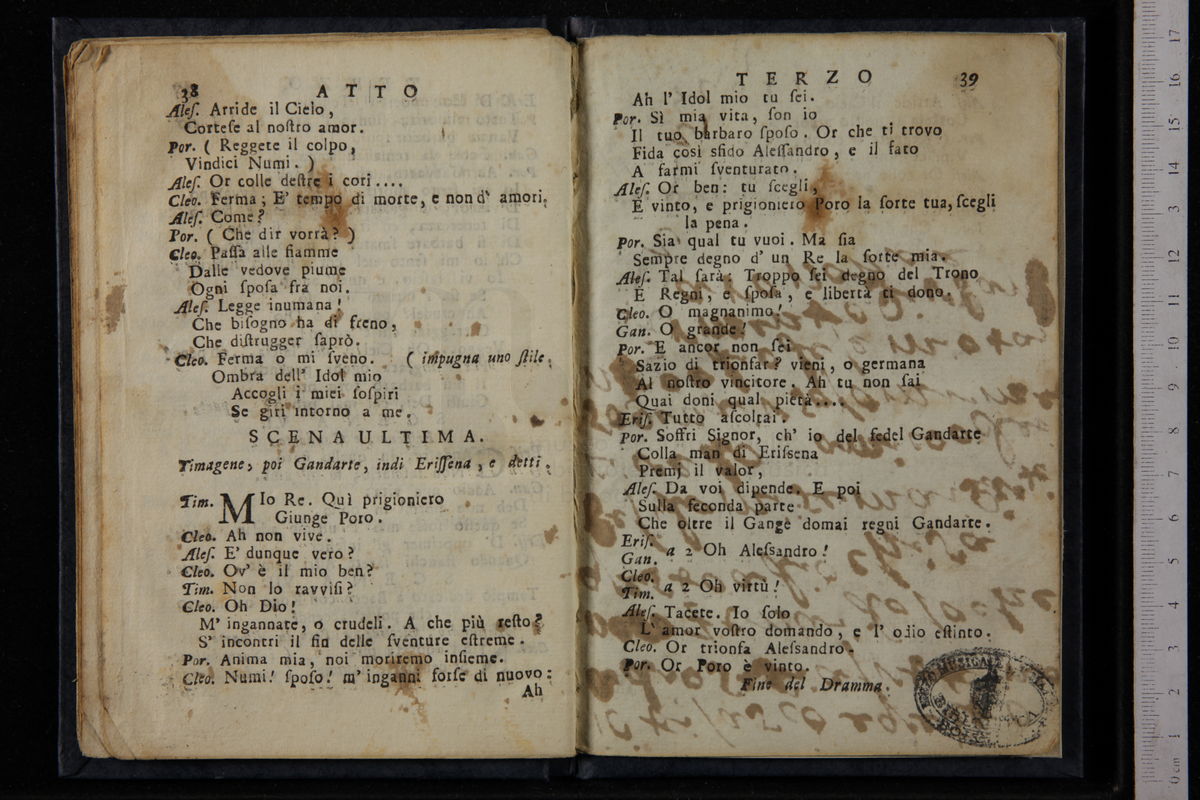 38 ATTO
Aleſ. Arride il Cielo,
Corteſe al noſtro amor.
Por. ( Reggete il colpo,
Vindici Numi. )
Aleſ. Or colle deſtre i cori....
Cleo. Ferma; E' tempo di morte, e non d' amori.
Aleſ. Come?
Por. ( Che dir vorrà? )
Cleo. Paſſa alle fiamme
Dalle vedove piume
Ogni ſpoſa fra noi.
Aleſ. Legge inumana!
Che biſogno ha di freno,
Che diſtrugger ſaprò.
Cleo. Ferma o mi ſveno. ( impugna uno ſtile.
Ombra dell' Idol mio
Accogli i miei ſoſpiri
Se giri intorno a me.
SCENA ULTIMA.
Timagene, poi Gandarte, indi Eriſſena, e detti.
Tim. MIo Re. Quì prigioniero
Giunge Poro.
Cleo. Ah non vive.
Aleſ. E' dunque vero?
Cleo. Ov' è il mio ben?
Tim. Non lo ravviſi?
Cleo. Oh Dio!
M' ingannate, o crudeli. A che più reſto?
S' incontri il fin delle ſventure eſtreme.
Por. Anima mia, noi moriremo inſieme.
Cleo. Numi! ſpoſo! m' inganni forſe di nuovo:
Ah
TERZO 39
Ah l' Idol mio tu ſei.
Por. Sì mia vita, ſon io
Il tuo barbaro ſpoſo. Or che ti trovo
Fida così sfido Aleſſandro, e il fato
A farmi ſventurato.
Aleſ. Or ben: tu ſcegli,
E vinto, e prigioniero Poro la ſorte tua, ſcegli
la pena.
Por. Sia qual tu vuoi. Ma ſia
Sempre degno d' un Re la ſorte mia.
Aleſ. Tal ſarà: Troppo ſei degno del Trono
E Regni, e ſpoſa, e libertà ti dono.
Cleo. O magnanimo!
Gan. O grande!
Por. E ancor non ſei
Sazio di trionfar? vieni, o germana
Al noſtro vincitore. Ah tu non ſai
Quai doni qual pietà....
Eriſ. Tutto aſcoltai.
Por. Soffri Signor, ch' io del fedel Gandarte
Colla man di Eriſsena
Premj il valor,
Aleſ. Da voi dipende. E poi
Sulla ſeconda parte
Che oltre il Gange domai regni Gandarte.
Eriſ.
Gan. a 2 Oh Aleſsandro!
Cleo.
Tim. a 2 Oh virtù!
Aleſ. Tacete. Io ſolo
L' amor voſtro domando, e l' odio eſtinto.
Cleo. Or trionfa Aleſsandro.
Por. Or Poro è vinto.
Fine del Dramma.